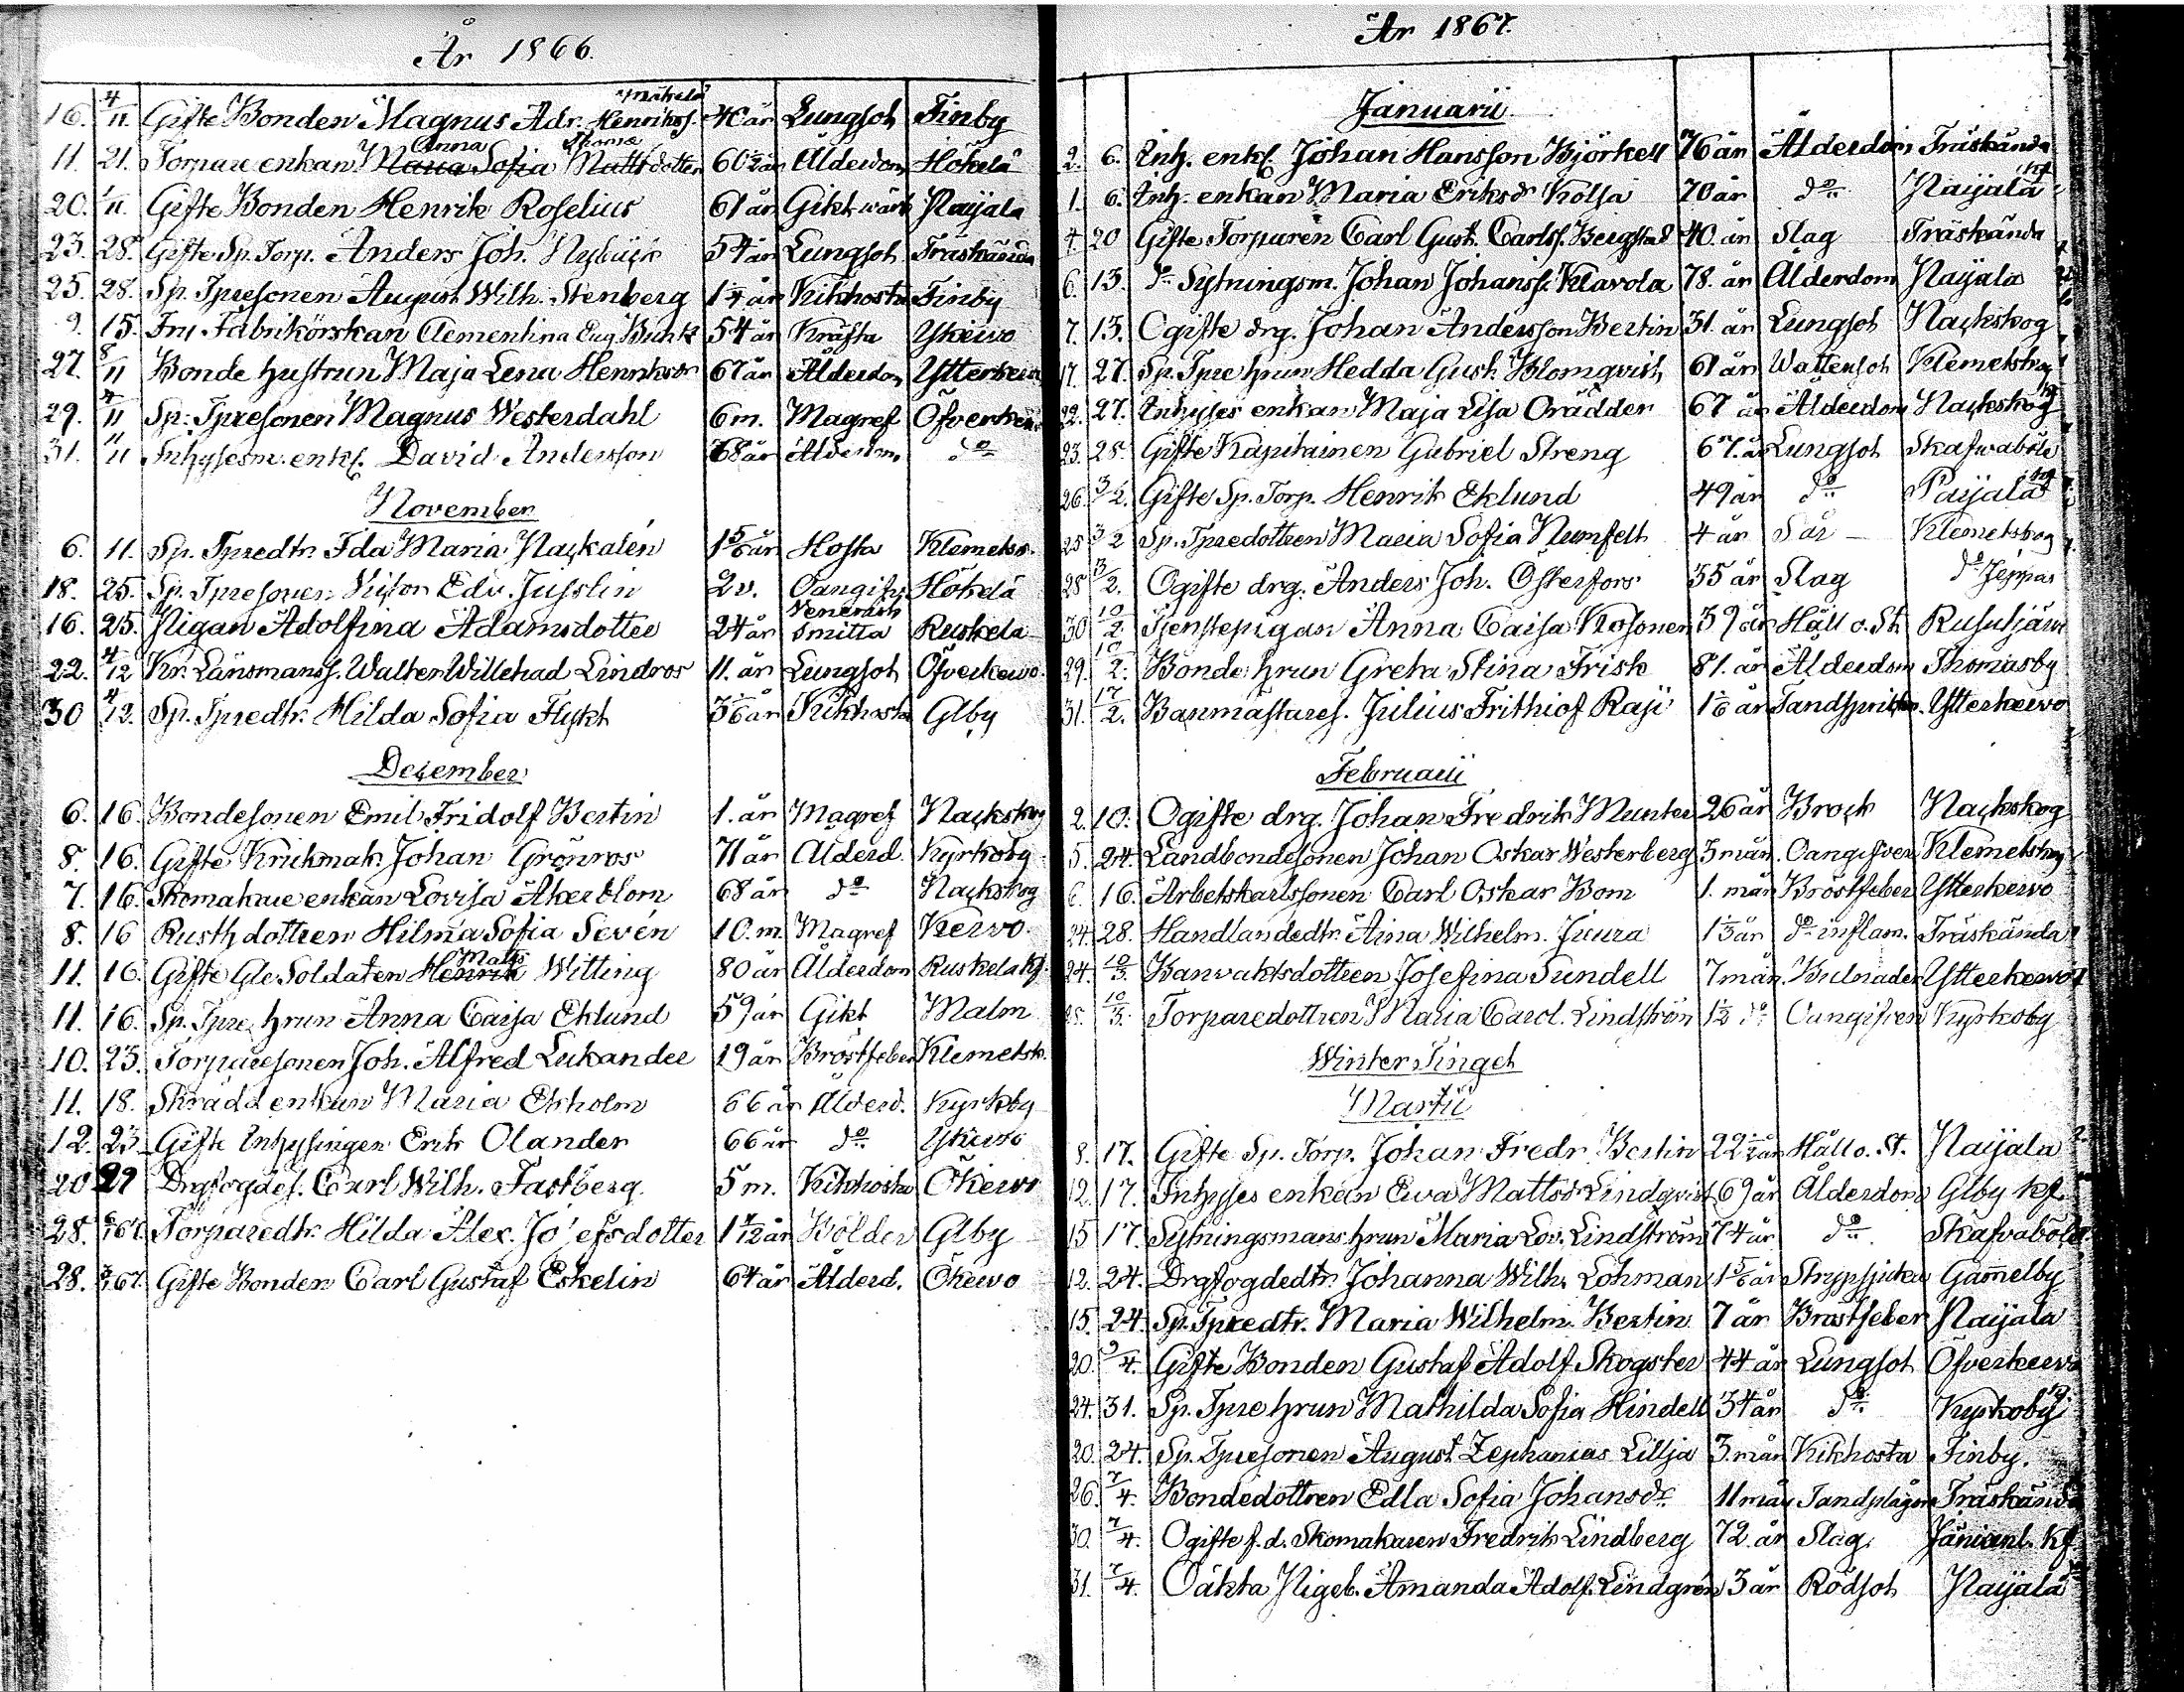 År 1866.
16. 4/11 Gifte Bonden Magnus Adr. Henrikss. "Mäkelä" 40 år Lungsot Finby
11. 21. Torpare enkan Maria Anna Sofia Matts Thomædotter 60 1/2 år Ålderdom Hökelä
20. 1/11 Gifte Bonden Henrik Roselius 61 år Gikt wärk Paijala
23. 28. Gifte Sp. Torp. Anders Joh. Nybäck 54 år Lungsot Träskända
25. 28. Sp. Tpresonen August Wilh. Stenberg 1 1/4 år Kikhosta Finby
9. 15. Fru Fabrikörskan Clementina Eug. 54 år Kräfta Ykerwo
27. 8/11 Bonde hustrun Maja Lena Henriksdr 67 år Ålderdom Ytterkerwo
29. 4/11 Sp. Tpresonen Magnus Westerdahl 6 m. Magref Öfverkerwo
31. 11/11 Inhysesm. enkl. David Andersson 68 år Ålderdom do
November
6. 11. Sp. Tpredtr. Ida Maria Nackalén 1 5/6 år Hosta Klemetsk.
18. 25. Sp. Tpresonen Victor Edv. Jusslin 2 v. Oangifv. Hökelä
16. 25. Pigan Adolfina Adamsdotter 24 år Venerisk Smitta Ruskela
22. 4/12 Kr. Länsmanss. Walter Willehad Lindros 11. år Lungsot Öfverkerwo
30 4/12. Sp. Tpredtr. Hilda Sofia Flykt 3 1/6 år Kikhosta Glby
December
6. 16. Bondesonen Emil Fridolf Bertin 1. år Magref Nackskog
8. 16. Gifte Krukmak. Johan Grönros 71 år Ålderd. Kyrkoby
7. 16. Skomakare enkan Lovisa Åkerblom 68 år do Nackskog
8. 16 Rusth. dottren Hilma Sofia Sevén 10. m. Magref Kerwo
11. 16. Gifte Gle Soldaten Henrik Matts Witting 80 år Ålderdom Ruskela kf.
11. 16. Sp. Tpre hrun Anna Caisa Eklund 59 år Gikt Malm
10. 23. Torparesonen Joh. Alfred Lukander 19 år Bröstfeber Klemetsk.
11. 18. Skrädd. enkan Maria Ekholm 66 år Ålderd. Kyrkoby
12. 23 Gifte Inhysingen Erik Olander 66 år do Ykerwo
20 29 Drgfogdes. Carl Wilh. Fastberg 5 m. Kikhosta Ökerwo
28. 6/1 67. Torparedtr. Hilda Alex. Josefsdotter 1 7/12 år Bölder Glby
28. 67. Gifte Bonden Carl Gustaf Eskelin 64 år Ålderd. Ökerwo
År 1867.
Januarii
2. 6. Inh. enkl. Johan Hansson Björkell 76 år Ålderdom Träskända
1. 6. Inh. enkan Maria Eriksdr Kolsa 70 år do Paijala kf
4. 20 Gifte Torparen Carl Gust. Carlss. Bergstad 40. år Slag Träskända
6. 13. do Sytningsm. Johan Johanss. Klavola 78. år Ålderdom Paijala
7. 13. Ogifte drg. Johan Andersson Bertin 31. år Lungsot Nackskog
17. 27. Sp. Tpre hrun Hedda Gust. Blomqvist 61 år Wattensot Klemetskog
22. 27. Inhyses enkan Maja Lisa Orädder 67 år Ålderdom Nackskog kf
23. 25. Gifte Kapitainen Gabriel Streng 67. år Lungsot Skafvaböle
26. 3/2. Gifte Sp. Torp. Henrik Eklund 49 år do Paijala
25 3/2 Sp. Tpredottren Maria Sofia Numfelt 4 år Sår Klemetskog
28 3/2. Ogifte drg. Anders Joh. Österfors 35 år Slag do Jeppas
30 10/2 Tjenstepigan Anna Caisa Kosonen 39 år Håll o. St. Rusutjärvi
29. 10/2. Bonde hrun Greta Stina Frisk 81. år Ålderdom Thomasby
31. 17/2. Banmästares. Julius Frithiof Raji 1 1/6 år Tandsprickn. Ytterkerwo
Februarii
2. 10. Ogifte drg. Johan Fredrik Munter 26 år Brock Nackskog
5. 24. Landbondesonen Johan Oskar Westerberg 3 mån. Oangifven Klemetskog
6. 16. Arbetskarlssonen Carl Oskar Bom 1. mån Bröstfeber Ytterkerwo
24. 28. Handlandedtr. Aina Wilhelm. Juura 1 1/3 år do inflam. Träskända
24. 10/3. Banvaktsdottren Josefina Sundell 7 mån. Bulnader Ytterkerwo
25. 10/3. Torparedottren Maria Carol. Lindström 1 1/2 do Oangifven Kyrkoby
Winter Tinget
Martii
8. 17. Gifte Sp. Torp. Johan Fredr. Bertin 22 1/2 år Håll o. St. Paijala
12. 17. Inhyses enkan Ewa Mattsdr Lindqvist 69 år Ålderdom Glby kf.
15 17. Sytningsmans hrun Maria Lov. Lindström 74 år do Skafvaböle
12. 24. Drgfogdedtr. Johanna Wilh. Lohman 1 5/6 år Strypsjuka Gammelby
15. 24. Sp. Tpredtr. Maria Wilhelm. Bertin 7 år Bröstfeber Paijala
20. 9/4. Gifte Bonden Gustaf Adolf Skogster 44 år Lungsot Öfverkerwo
24. 31. Sp. Tpre hrun Mathilda Sofia Hindell 34 år do Kyrkoby
20. 24. Sp. Tpresonen August Zephanias Lillja 3. mån Kikhosta Finby.
26. 7/4. Bondedottren Edla Sofia Johansdr 11 mån Tandplågor Träskända
30. 7/4. Ogifte f. d. Skomakaren Fredrik Lindberg 72 år Slag. kf.
31. 7/4. Oäkta Pigeb. Amanda Adolf. Lindgrén 3 år Rödsot Paijala